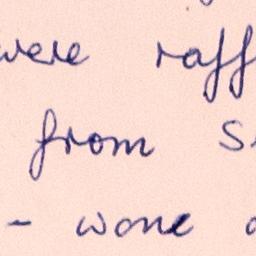 were raff
from s
- wone a